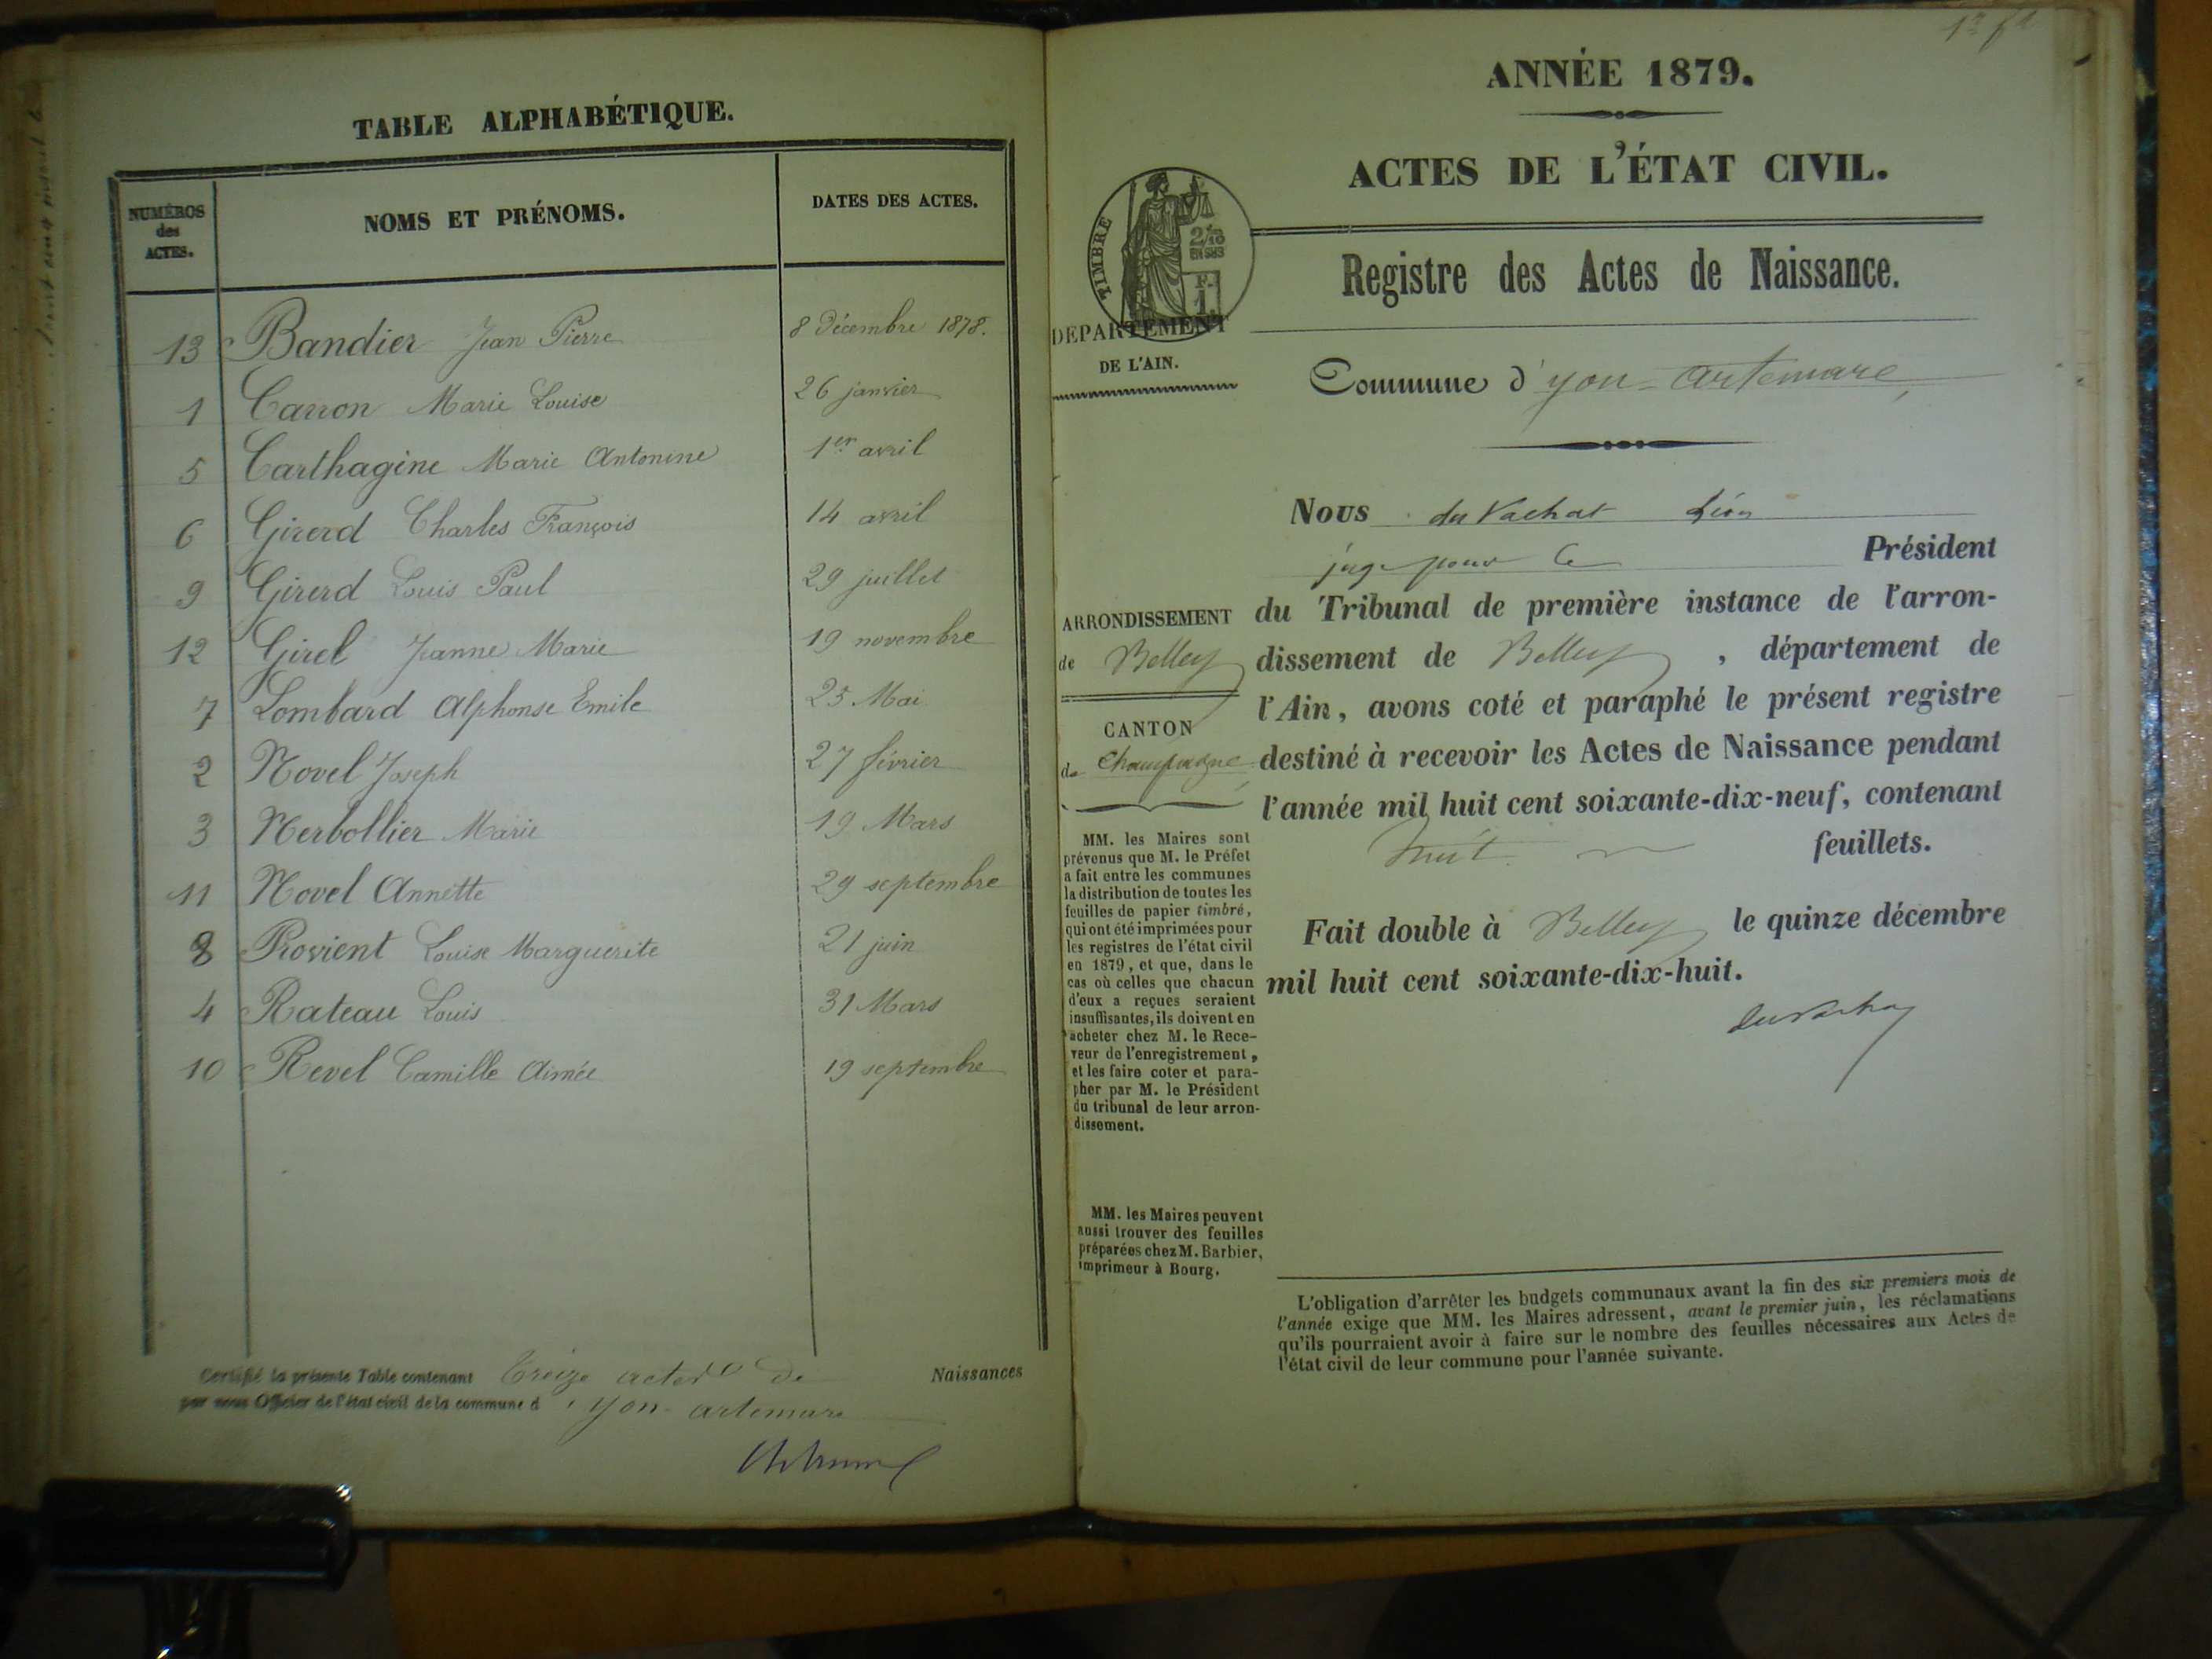 TABLE ALPHABÉTIQUE.
NUMÉROS des ACTES.
NOMS ET PRÉNOMS.
DATES DES ACTES.
13 Bandier Jean Pierre 8 Décembre 1878.
1 Carron Marie Louise 26 janvier
5 Carthagène Marie Antonine 1er avril
6 Girerd Charles François 14 avril
9 Girerd Louis Paul 29 juillet
12 Girel Jeanne Marie 19 novembre
7 Lombard Alphonse Emile 25 Mai
2 Novel Joseph 27 février
3 Nerbollier Marie 19 Mars
11 Novel Annette 29 septembre
8 Provient Louise Marguerite 21 juin
4 Rateau Louis 31 Mars
10 Revel Camille Aimée 19 septembre
Certifié la présente Table contenant Treize actes de Naissances
par nous Officier de l'état civil de la commune d'yon-artemare
ANNÉE 1879.
ACTES DE L'ÉTAT CIVIL.
TIMBRE
2/10
EN SUS
F.
1.
Registre des Actes de Naissance.
DÉPARTEMENT
DE L'AIN.
Commune d'yon-artemare,
Nous du Vachat Léon
juge pour le Président
du Tribunal de première instance de l'arron-
dissement de Belley, département de
l'Ain, avons coté et paraphé le présent registre
destiné à recevoir les Actes de Naissance pendant
l'année mil huit cent soixante-dix-neuf, contenant
huit feuillets.
Fait double à Belley le quinze décembre
mil huit cent soixante-dix-huit.
du Vachat
ARRONDISSEMENT
de Belley
CANTON
de Champagne
MM. les Maires sont
prévenus que M. le Préfet
a fait entre les communes
la distribution de toutes les
feuilles de papier timbré,
qui ont été imprimées pour
les registres de l'état civil
en 1879, et que, dans le
cas où celles que chacun
d'eux a reçues seraient
insuffisantes, ils doivent en
acheter chez M. le Rece-
veur de l'enregistrement,
et les faire coter et para-
pher par M. le Président
du tribunal de leur arron-
dissement.
MM. les Maires peuvent
aussi trouver des feuilles
préparées chez M. Barbier,
imprimeur à Bourg.
L'obligation d'arrêter les budgets communaux avant la fin des six premiers mois de
l'année exige que MM. les Maires adressent, avant le premier juin, les réclamations
qu'ils pourraient avoir à faire sur le nombre des feuilles nécessaires aux Actes de
l'état civil de leur commune pour l'année suivante.